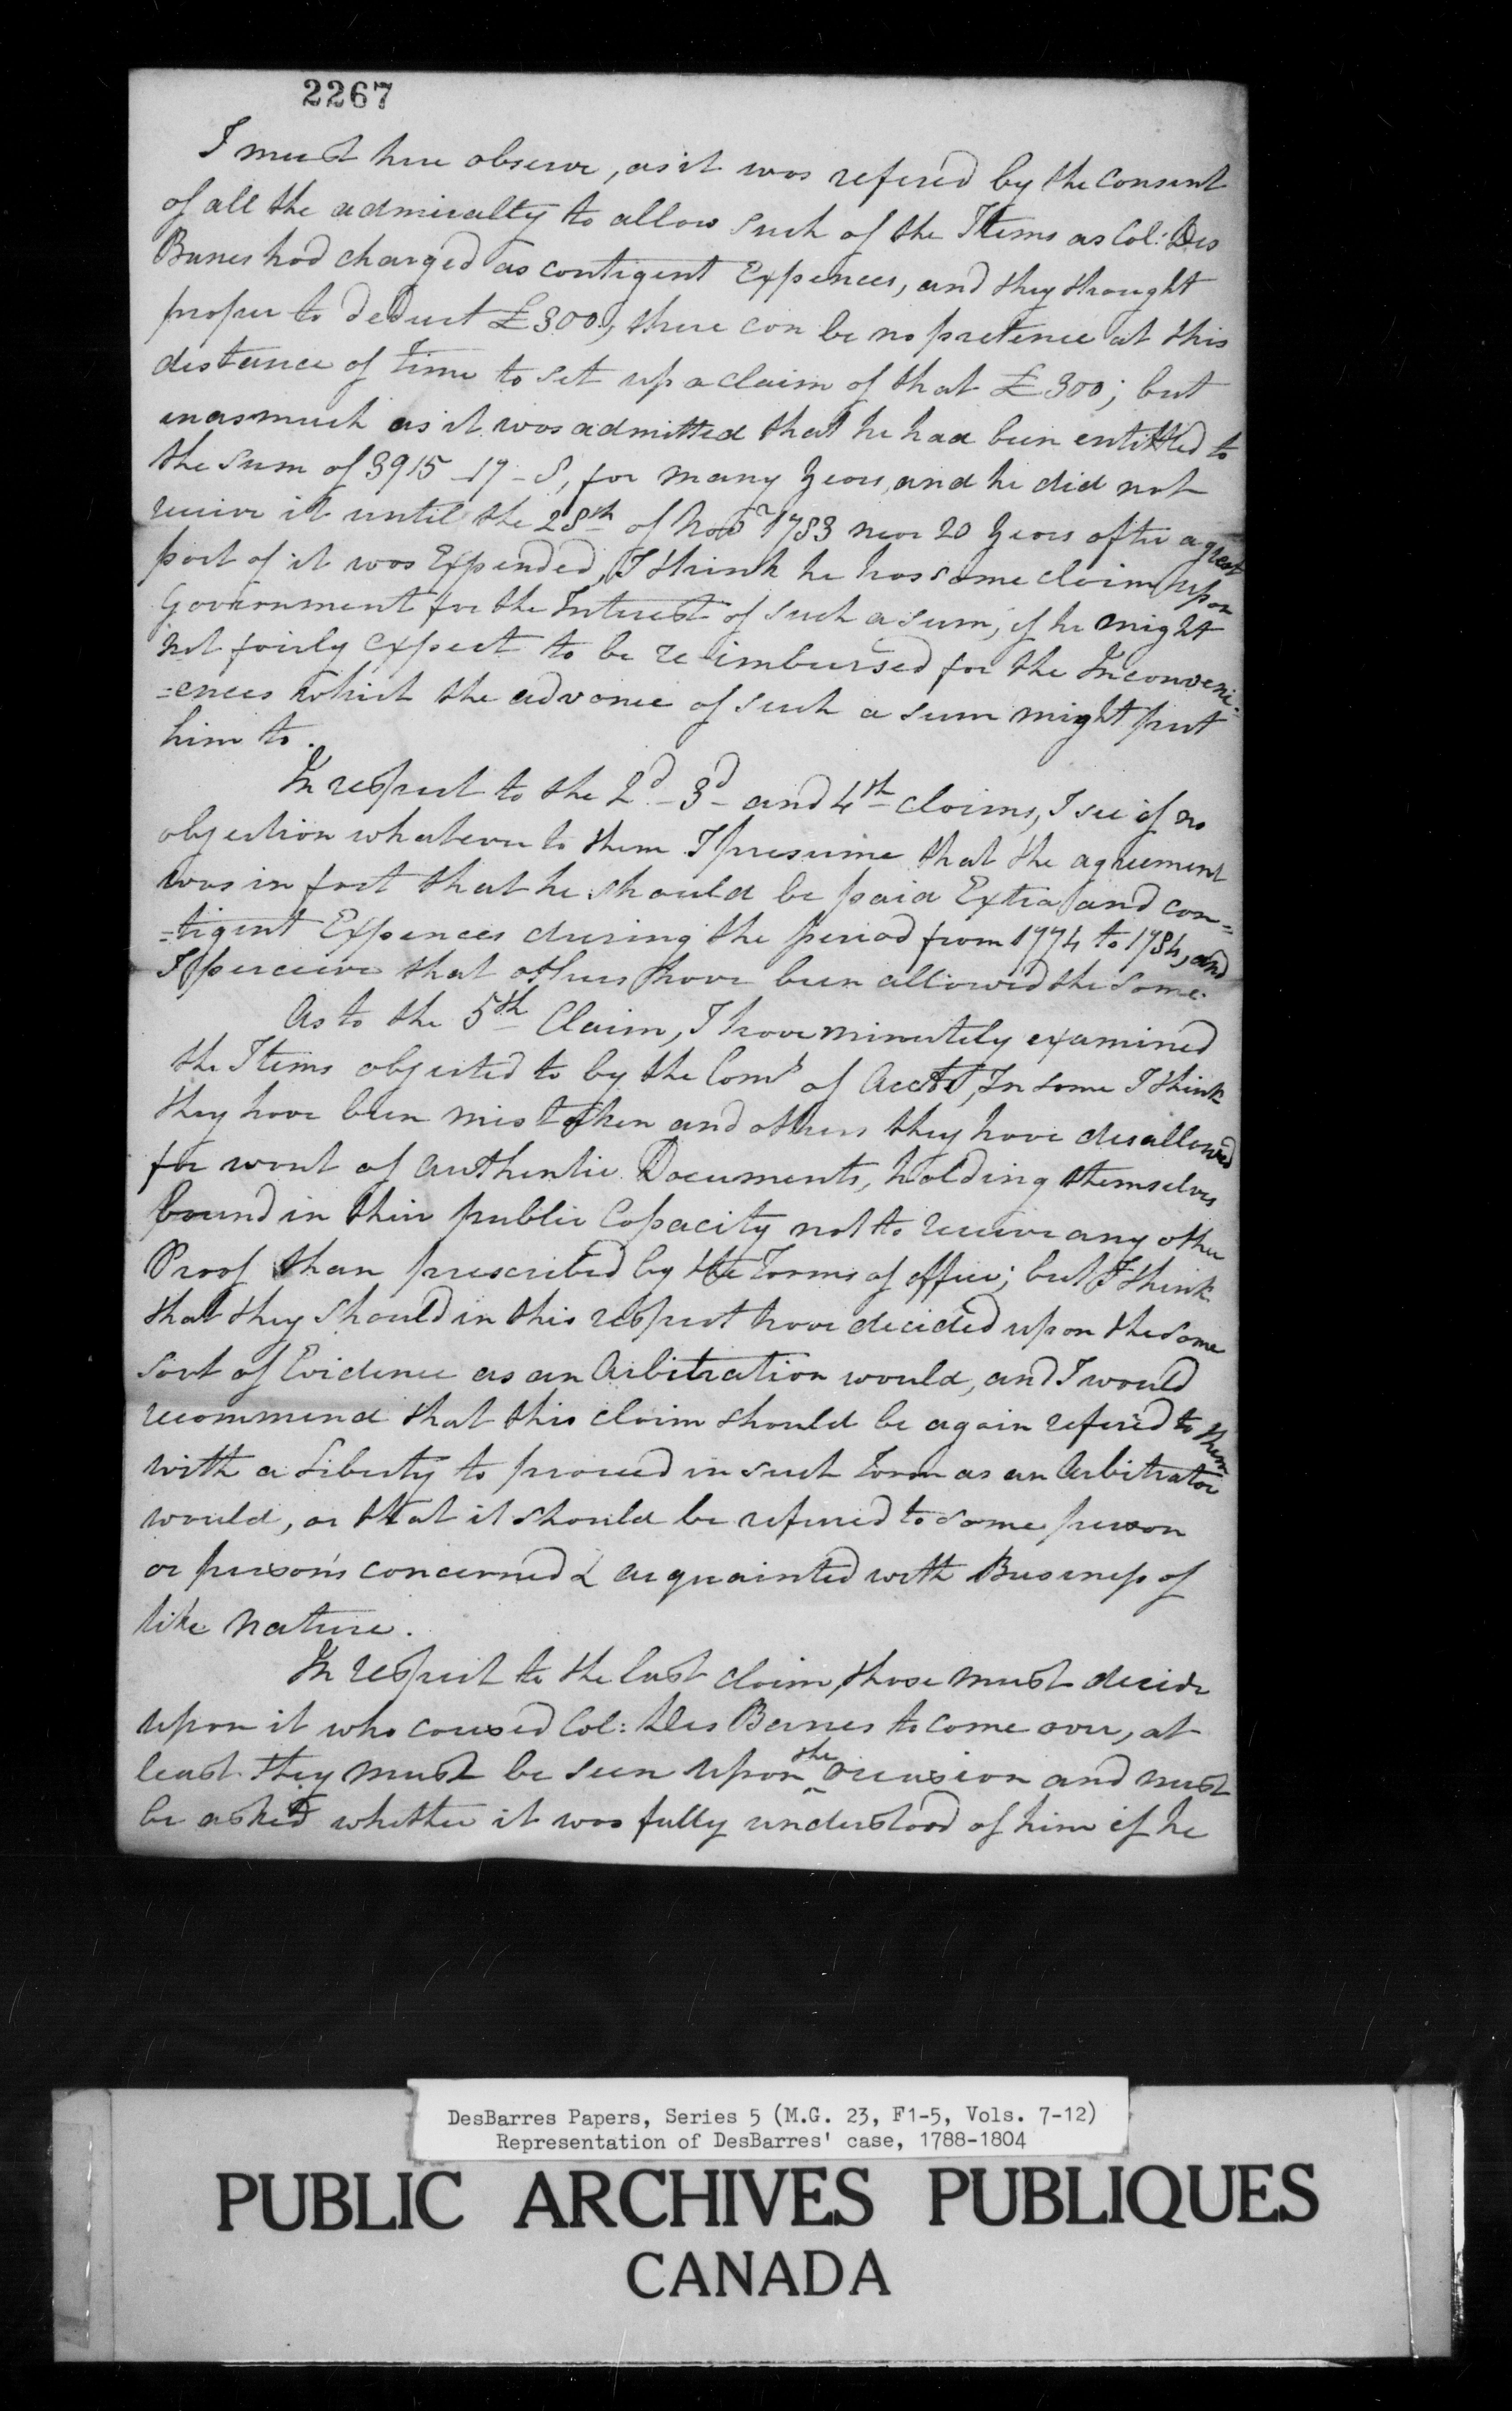 2267
I must here observe, as it was refered by the Consent
of all the admiralty to allow such of the Items as Col: Des
Barres had charged as contigent Expences, and they thought
proper to deduct £300, there can be no pretence at this
distance of time to set up a claim of that £300; but
inasmuch as it was admitted that he had been entitled to
the sum of 3915-17-8, for many Years, and he did not
receive it until the 28th of Novr 1783 near 20 Years after a great
part of it was Expended, I think he has some claim upon
Government for the Interest of such a sum, if he might
not fairly expect to be re imbursed for the Inconveni-
=ences which the advance of such a sum might put
him to.
In respect to the 2d- 3d- and 4th claims, I see of no
objection whatever to them I presume that the agreement
was in fact that he should be paid Extra and con=
=tigent Expences during the period from 1774 to 1784, and
I perceive that others have been allowed the same.
As to the 5th Claim, I have minutely examined
the Items objected to by the Comrs of Acctts, In some I think
they have been mistaken and others they have disallowed
for want of authentic Documents, holding themselves
bound in their public Capacity not to receive any other
Proof than prescribed by the Forms of office; but I think
that they should in this respect have decided upon the same
sort of Evidence as an Arbitration would, and I would
recommend that this claim should be again refered to them
with a Liberty to proceed in such Form as an Arbitrator
would, or that it should be refered to some person
or persons concerned & acquainted with Business of
like nature.
In respect to the last claim, those must decide
upon it who caused Col: Des Barres to come over, at
least they must be seen upon the occasion and must
be asked whether it was fully understood of him if he
DesBarres Papers, Series 5 (M.G. 23, F1-5, Vols. 7-12)
Representation of DesBarres' case, 1788-1804
PUBLIC ARCHIVES PUBLIQUES
CANADA